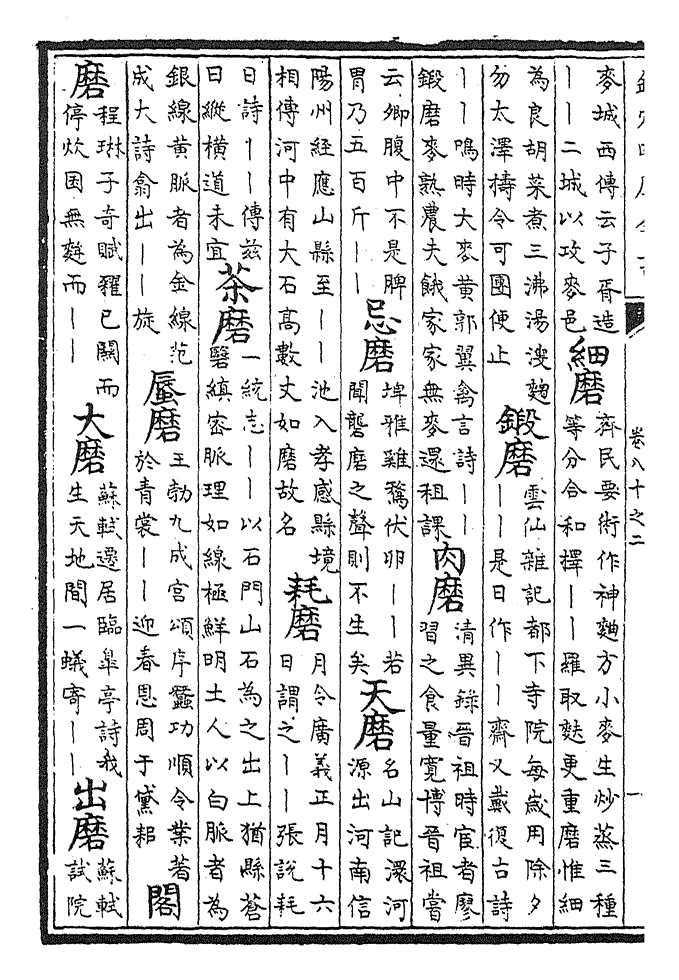 卷八十之二
一
麥城西傳云子胥造
丨丨二城以攻麥邑
細磨
齊民要術作神麯方小麥生炒蒸三種
等分合和擇丨丨羅取麩更重磨惟細
為良胡菜煮三沸湯溲麴
勿太澤擣令可團便止
鍛磨
雲仙雜記都下寺院每歲用除夕
丨丨是日作丨丨齋又戴復古詩
丨丨鳴時大麥黃郭翼禽言詩丨丨
鍛磨麥熟農夫餓家家無麥還租課
肉磨
清異錄晉祖時宦者廖
習之食量寬博晉祖嘗
云卿腹中不是脾
胃乃五百斤丨丨
忌磨
埤雅雞鶩伏卵丨丨若
聞礱磨之聲則不生矣
天磨
名山記澴河
源出河南信
陽州經應山縣至丨丨池入孝感縣境
相傳河中有大石高數丈如磨故名
耗磨
月令廣義正月十六
日謂之丨丨張說耗
日詩丨丨傳兹
日縱橫道未宜
茶磨
一統志丨丨以石門山石為之出上猶縣蒼
縝密脈理如線極鮮明土人以白脈者為
銀線黃脈者為金線范
成大詩翕出丨丨旋
蠶磨
王勃九成宮頌序蠶功順令業著
於青裳丨丨迎春恩周于黛耜
閣
磨
程琳子奇賦糴已闕而
停炊囷無麰而丨丨
大磨
蘇軾遷居臨臯亭詩我
生天地間一蟻寄丨丨
出磨
蘇軾
試院